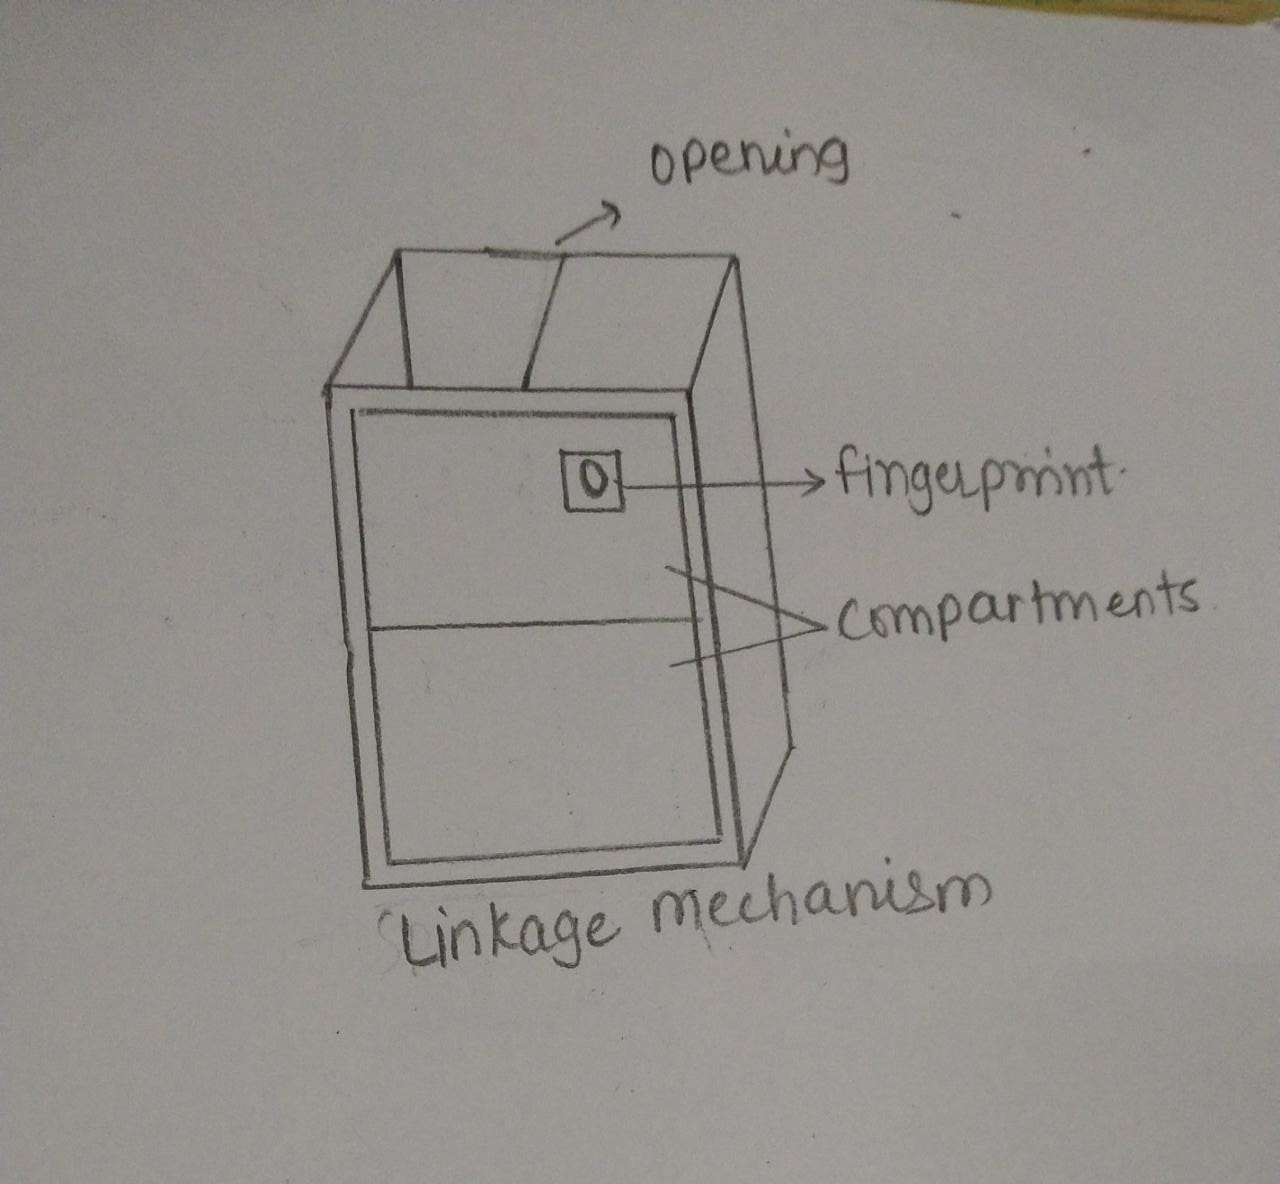 opening
fingerprint.
compartments
Linkage mechanism